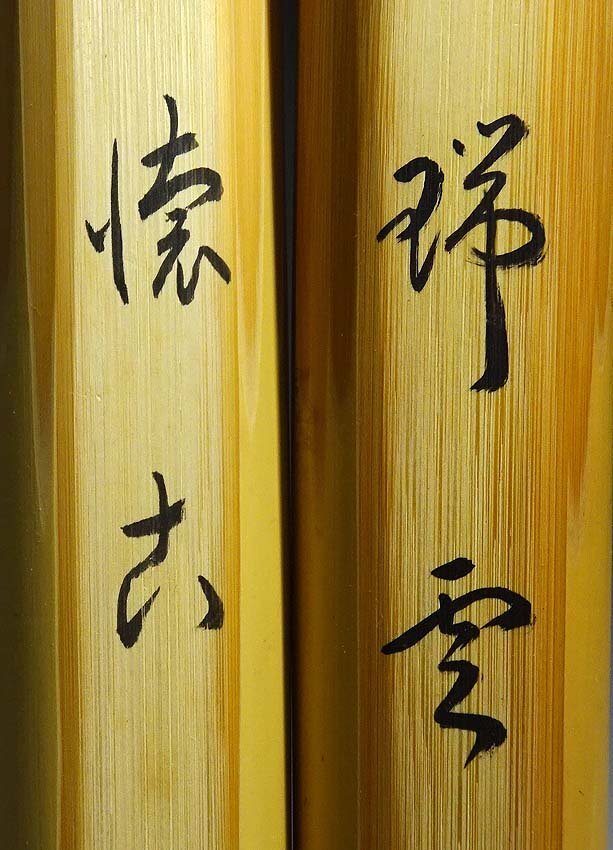 瑞雲
懐古